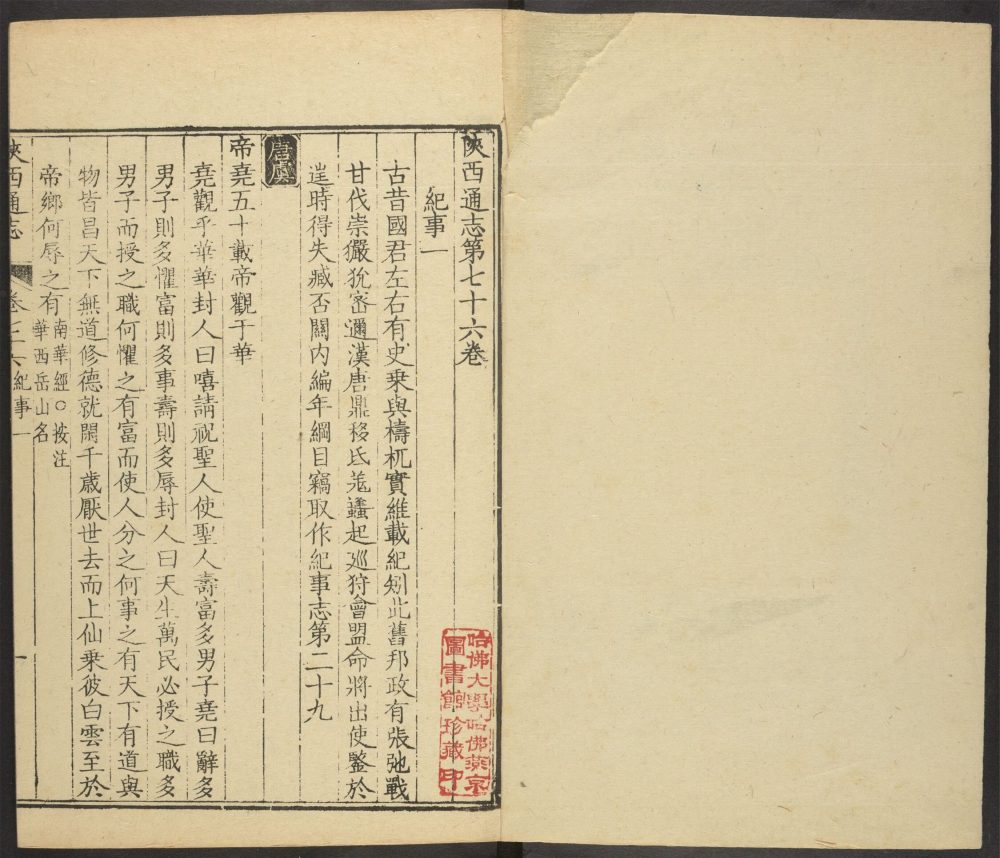 陝西通志第七十六卷
紀事一
古昔國君左右有史乗與檮杌實維載紀矧此舊邦政有張弛戰
甘伐崇玁狁密邇漢唐鼎移氐羗蠭起廵狩會盟命將出使鑒於
逞時得失臧否關内編年綱目竊取作紀事志第二十九
唐虞
帝堯五十載帝觀于華
堯觀乎華華封人曰嘻請祝聖人使聖人壽富多男子堯曰辭多
男子則多懼富則多事壽則多辱封人曰天生萬民必授之職多
男子而授之職何懼之有富而使人分之何事之有天下有道與
物皆昌天下無道修德就閑千歲厭世去而上仙乗彼白雲至於
帝鄉何辱之有南華經○按注
華西岳山名
陝西通志
卷七十六紀事一
一
哈佛大學哈佛燕京
圖書館珍藏印